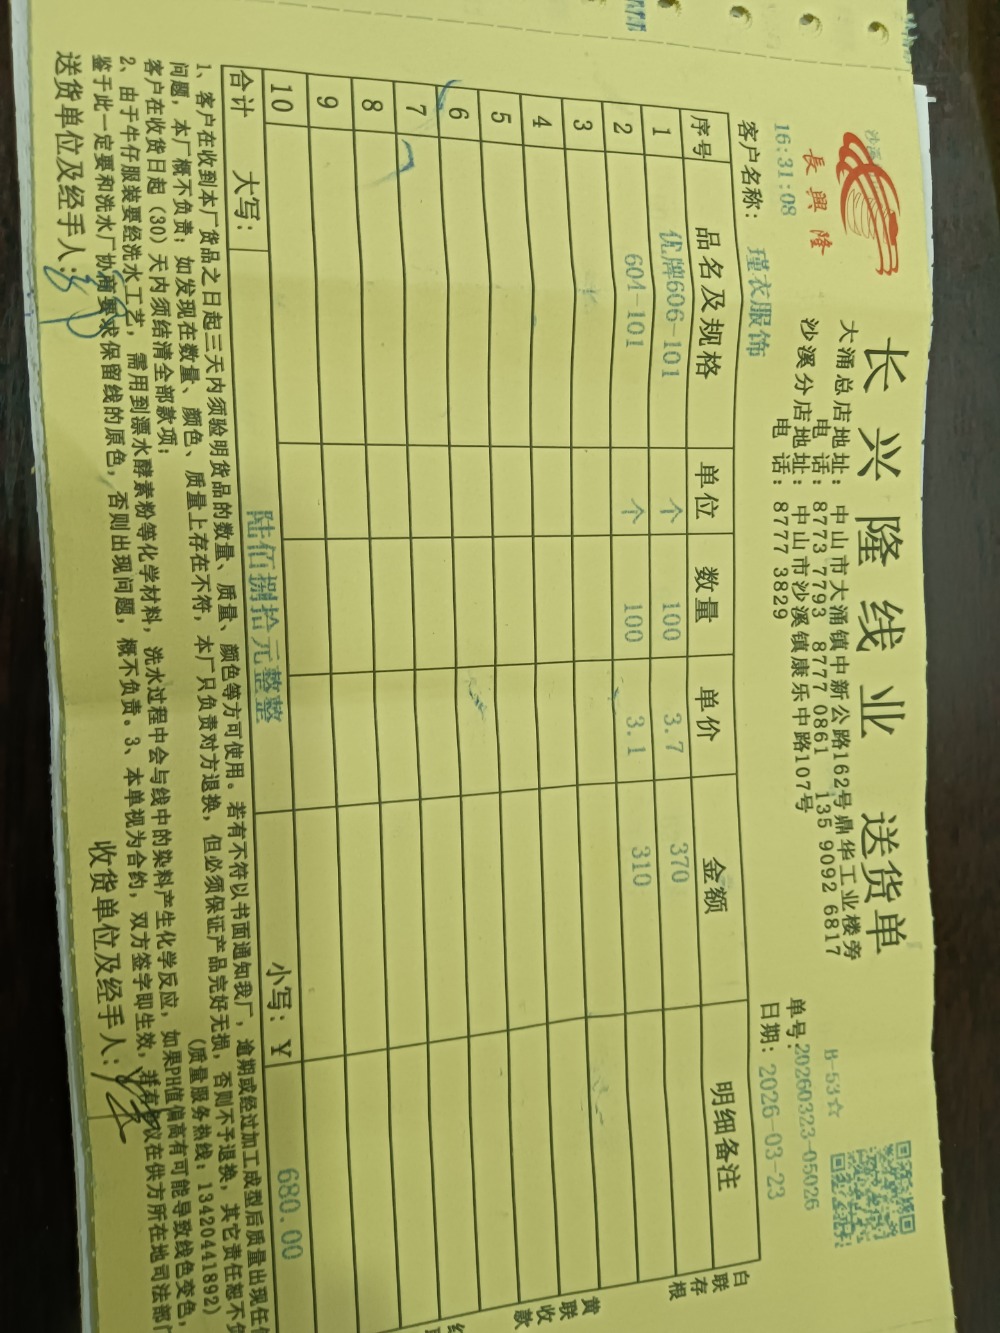 沙溪
長興隆
长兴隆线业 送货单
大涌总店地址: 中山市大涌镇中新公路162号鼎华工业楼旁
电 话: 8773 7793 8777 0861 135 9092 6817
沙溪分店地址: 中山市沙溪镇康乐中路107号
电 话: 8777 3829
B-53☆
单号: 20260323-05026
16:31:08
日期: 2026-03-23
客户名称: 瑾衣服饰
序号 品名及规格 单位 数量 单价 金额 明细备注
1 优牌606-101 个 100 3.7 370
2 604-101 个 100 3.1 310
3
4
5
6
7
8
9
10
合计 大写: 陆佰捌拾元整整 小写: ¥ 680.00
白联存根
黄联收款
1、客户在收到本厂货品之日起三天内须验明货品的数量、质量、颜色等方可使用。若有不符以书面通知我厂, 逾期或经过加工成型后质量出现任何
问题, 本厂概不负责; 如发现在数量、颜色、质量上存在不符, 本厂只负责对方退换, 但必须保证产品完好无损, 否则不予退换, 其它责任恕不负
客户在收货日起(30)天内须结清全部款项; (质量服务热线: 13420441892)
2、由于牛仔服装要经洗水工艺, 需用到漂水酵素粉等化学材料, 洗水过程中会与线中的染料产生化学反应, 如果PH值偏高有可能导致线色变色,
鉴于此一定要和洗水厂协商要求保留线的原色, 否则出现问题, 概不负责。3、本单视为合约, 双方签字即生效, 若有争议在供方所在地司法部门
送货单位及经手人: 收货单位及经手人: